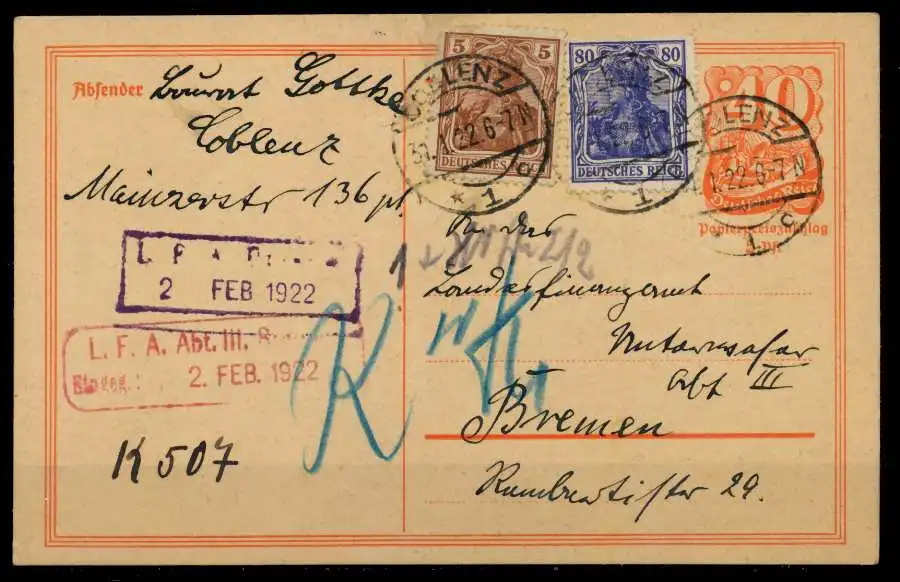 Absender Baurat Gottke
Coblenz
Mainzerstr 136 pt.
5 5
DEUTSCHES
80 80
DEUTSCHES REICH
40
Deutsches Reich
Papierpreiszuschlag
5 Pf.
COBLENZ
31.1.22 6-7 N
* 1 d
LENZ
1.22 6-7 N
* 1 d
L. F. A.
2 FEB 1922
L. F. A. Abt. III.
Eingeg. 2. FEB. 1922
K 507
K
An das
Landesfinanzamt
Unterweser
Abt III
Bremen
29.